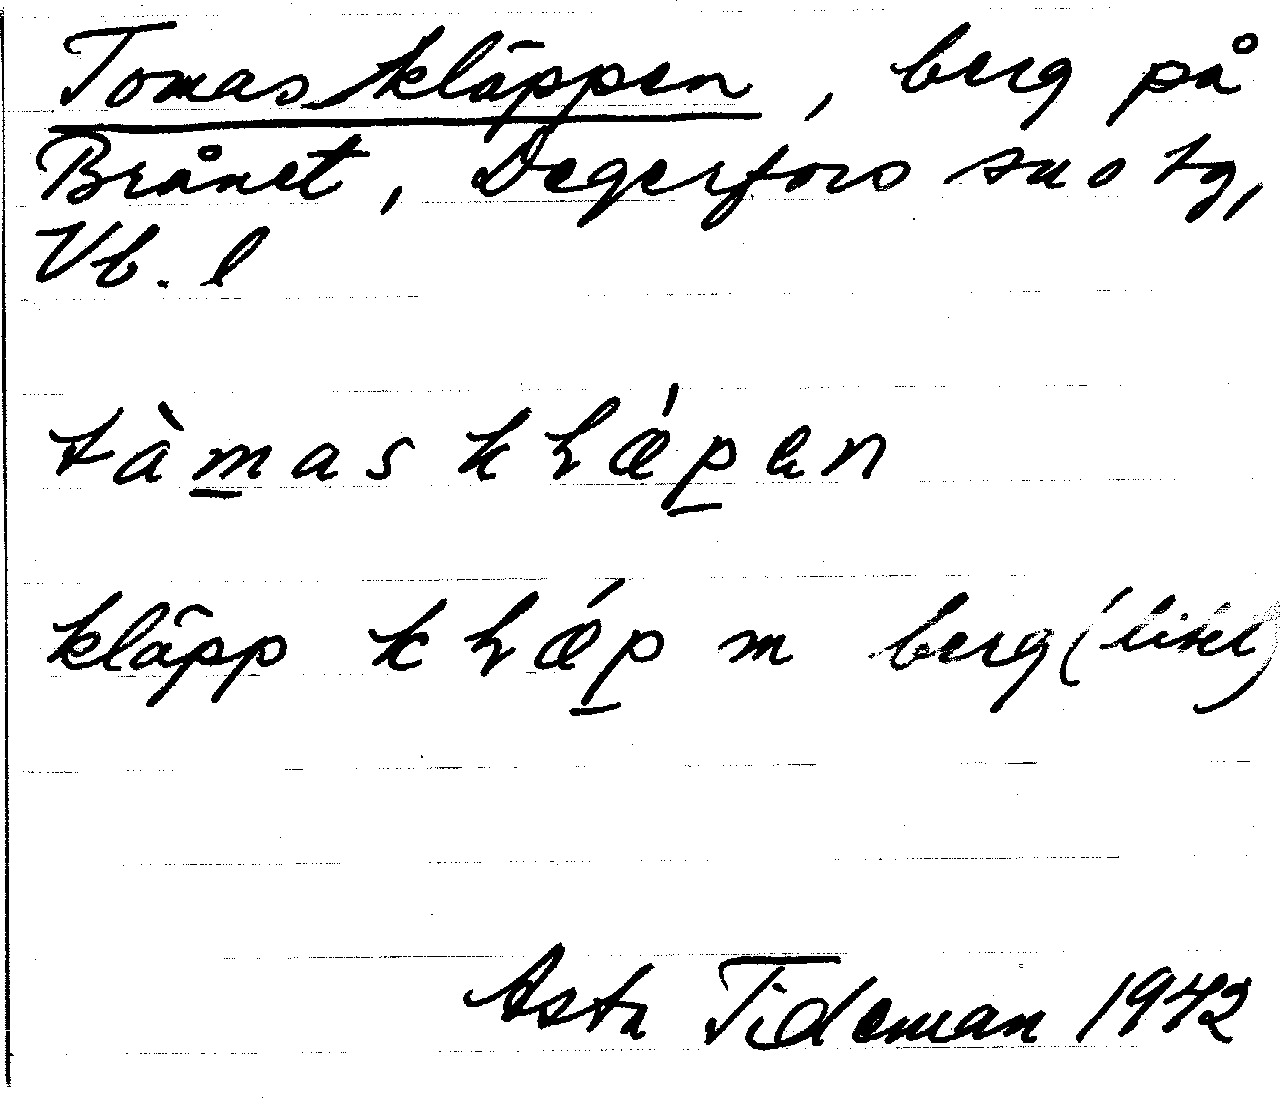 Tomaskläppen, berg på
Brånet, Degerfors sn o tg,
Vb. l
tàmas kɬǽpen
kläpp kɬǽp m berg (litet)
Asta Tideman 1942